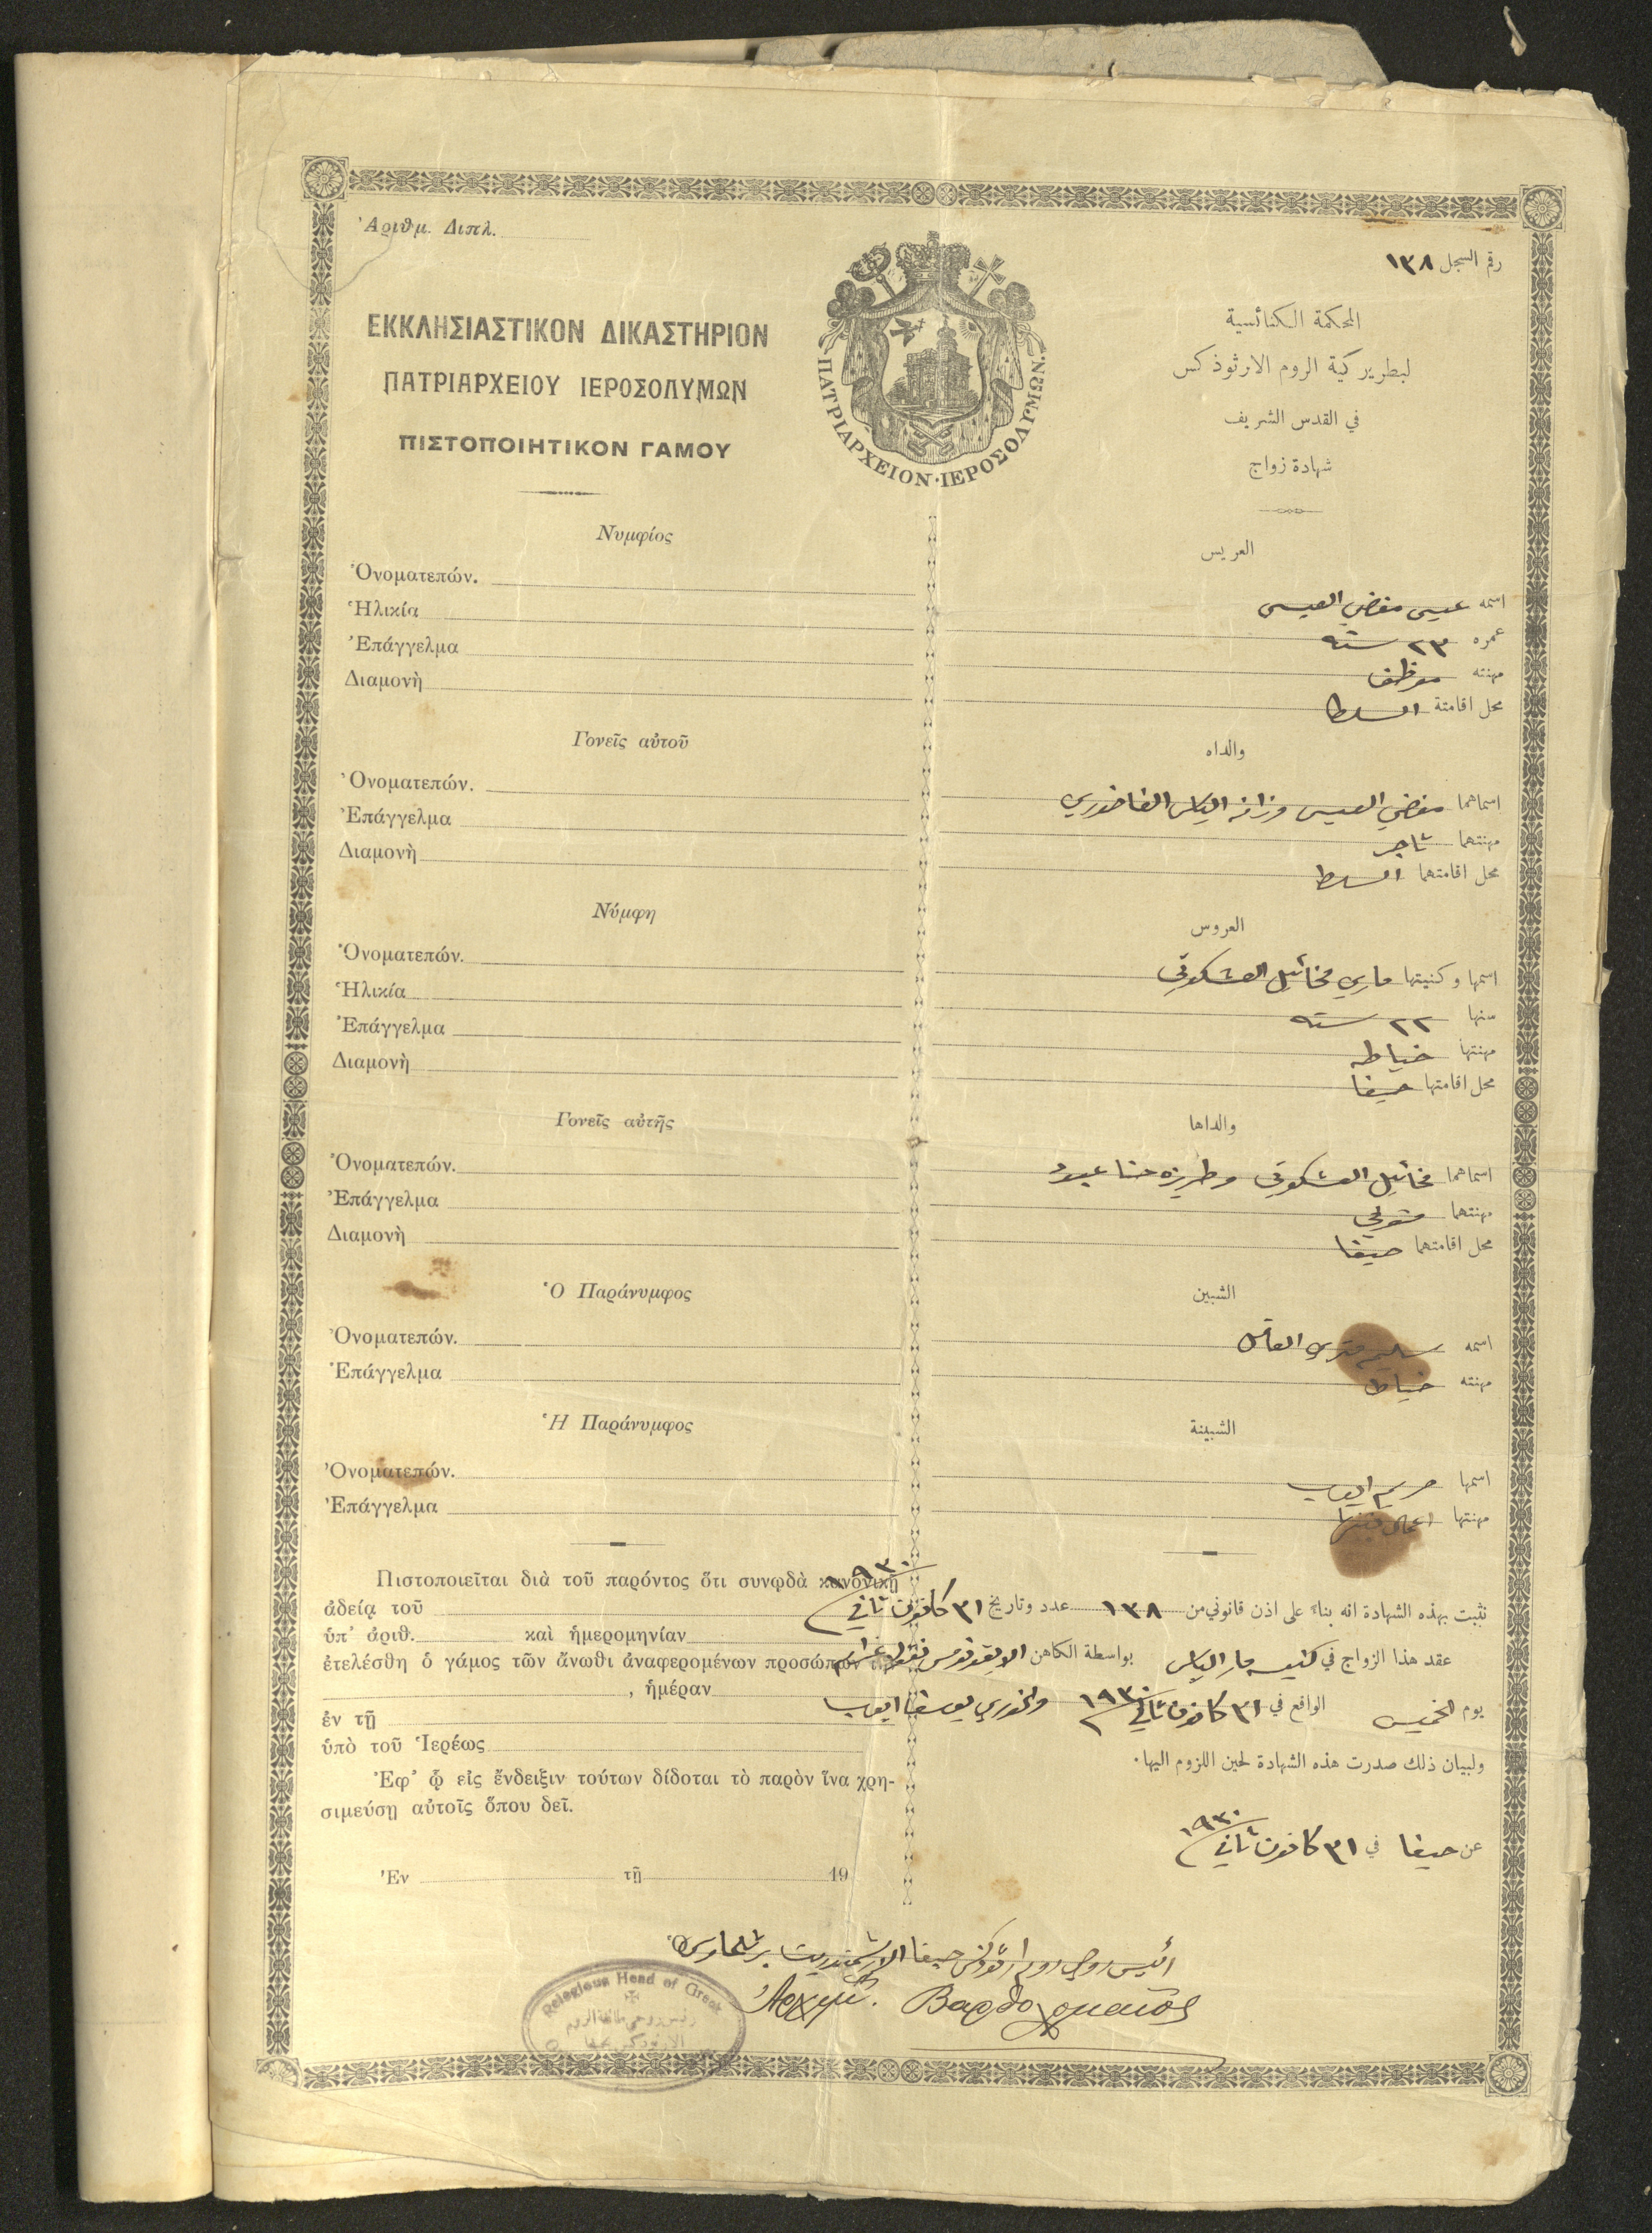 Ἀριθμ. Διπλ.
رقم السجل ١٣٨
ΕΚΚΛΗΣΙΑΣΤΙΚΟΝ ΔΙΚΑΣΤΗΡΙΟΝ
ΠΑΤΡΙΑΡΧΕΙΟΥ ΙΕΡΟΣΟΛΥΜΩΝ
ΠΙΣΤΟΠΟΙΗΤΙΚΟΝ ΓΑΜΟΥ
ΠΑΤΡΙΑΡΧΕΙΟΝ·ΙΕΡΟΣΟΛΥΜΩΝ.
المحكمة الكنائسية
لبطريركية الروم الارثوذكس
في القدس الشريف
شهادة زواج
Νυμφίος
Ὀνοματεπών.
Ἡλικία
Ἐπάγγελμα
Διαμονὴ
Γονεῖς αὐτοῦ
Ὀνοματεπών.
Ἐπάγγελμα
Διαμονὴ
Νύμφη
Ὀνοματεπών.
Ἡλικία
Ἐπάγγελμα
Διαμονὴ
Γονεῖς αὐτῆς
Ὀνοματεπών.
Ἐπάγγελμα
Διαμονὴ
Ὁ Παράνυμφος
Ὀνοματεπών.
Ἐπάγγελμα
Ἡ Παράνυμφος
Ὀνοματεπών.
Ἐπάγγελμα
Πιστοποιεῖται διὰ τοῦ παρόντος ὅτι συνῳδὰ κανονικῇ
ἀδείᾳ τοῦ
ὑπ' ἀριθ. καὶ ἡμερομηνίαν
ἐτελέσθη ὁ γάμος τῶν ἄνωθι ἀναφερομένων προσώπων
, ἡμέραν
ἐν τῇ
ὑπὸ τοῦ Ἱερέως
Ἐφ' ᾧ εἰς ἔνδειξιν τούτων δίδοται τὸ παρὸν ἵνα χρη-
σιμεύσῃ αὐτοῖς ὅπου δεῖ.
Ἐν τῇ 19
العريس
اسمه عيسى مفضي العيسى
عمره ٢٣ سنه
مهنته موظف
محل اقامتة السلط
والداه
اسماهما مفضي العيسى و الياس الفاخوري
مهنتهما تاجر
محل اقامتهما السلط
العروس
اسمها وكنيتها ماري مخائيل
سنها ٢٢ سنه
مهنتها خياطه
محل اقامتها حيفا
والداها
اسماهما مخائيل وطريزه حنا عبود
مهنتهما
محل اقامتهما حيفا
الشبين
اسمه سليم
مهنته خياط
الشبينة
اسمها مريم ايوب
مهنتها اعمال بيتها
نثبت بهذه الشهادة انه بناء على اذن قانوني من ١٣٨ عدد وتاريخ ٣١ كانون ثاني ١٩٣٠
عقد هذا الزواج في كنيسة مار الياس بواسطة الكاهن
يوم الخميس الواقع في ٣١ كانون ثاني ١٩٣٠ والخوري يوسف ايوب
ولبيان ذلك صدرت هذه الشهادة لحين اللزوم اليها.
عن حيفا في ٣١ كانون ثاني ١٩٣٠
رئيس روحي روم ارثوذكس حيفا الارشمندريت برثلماوس
Ἀρχιμ. Βαρθολομαῖος
Relegious Head of Greek
رئيس روحي طائفة الروم
الارثوذكس بحيفا